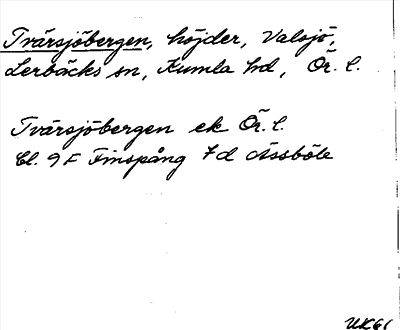 Tvärsjöbergen, höjder, Valsjö,
Lerbäcks sn, Kumla hd, Ör. l.
Tvärsjöbergen ek Ör. l.
Bl. 9 F Finspång 7d Åssböle
UK61